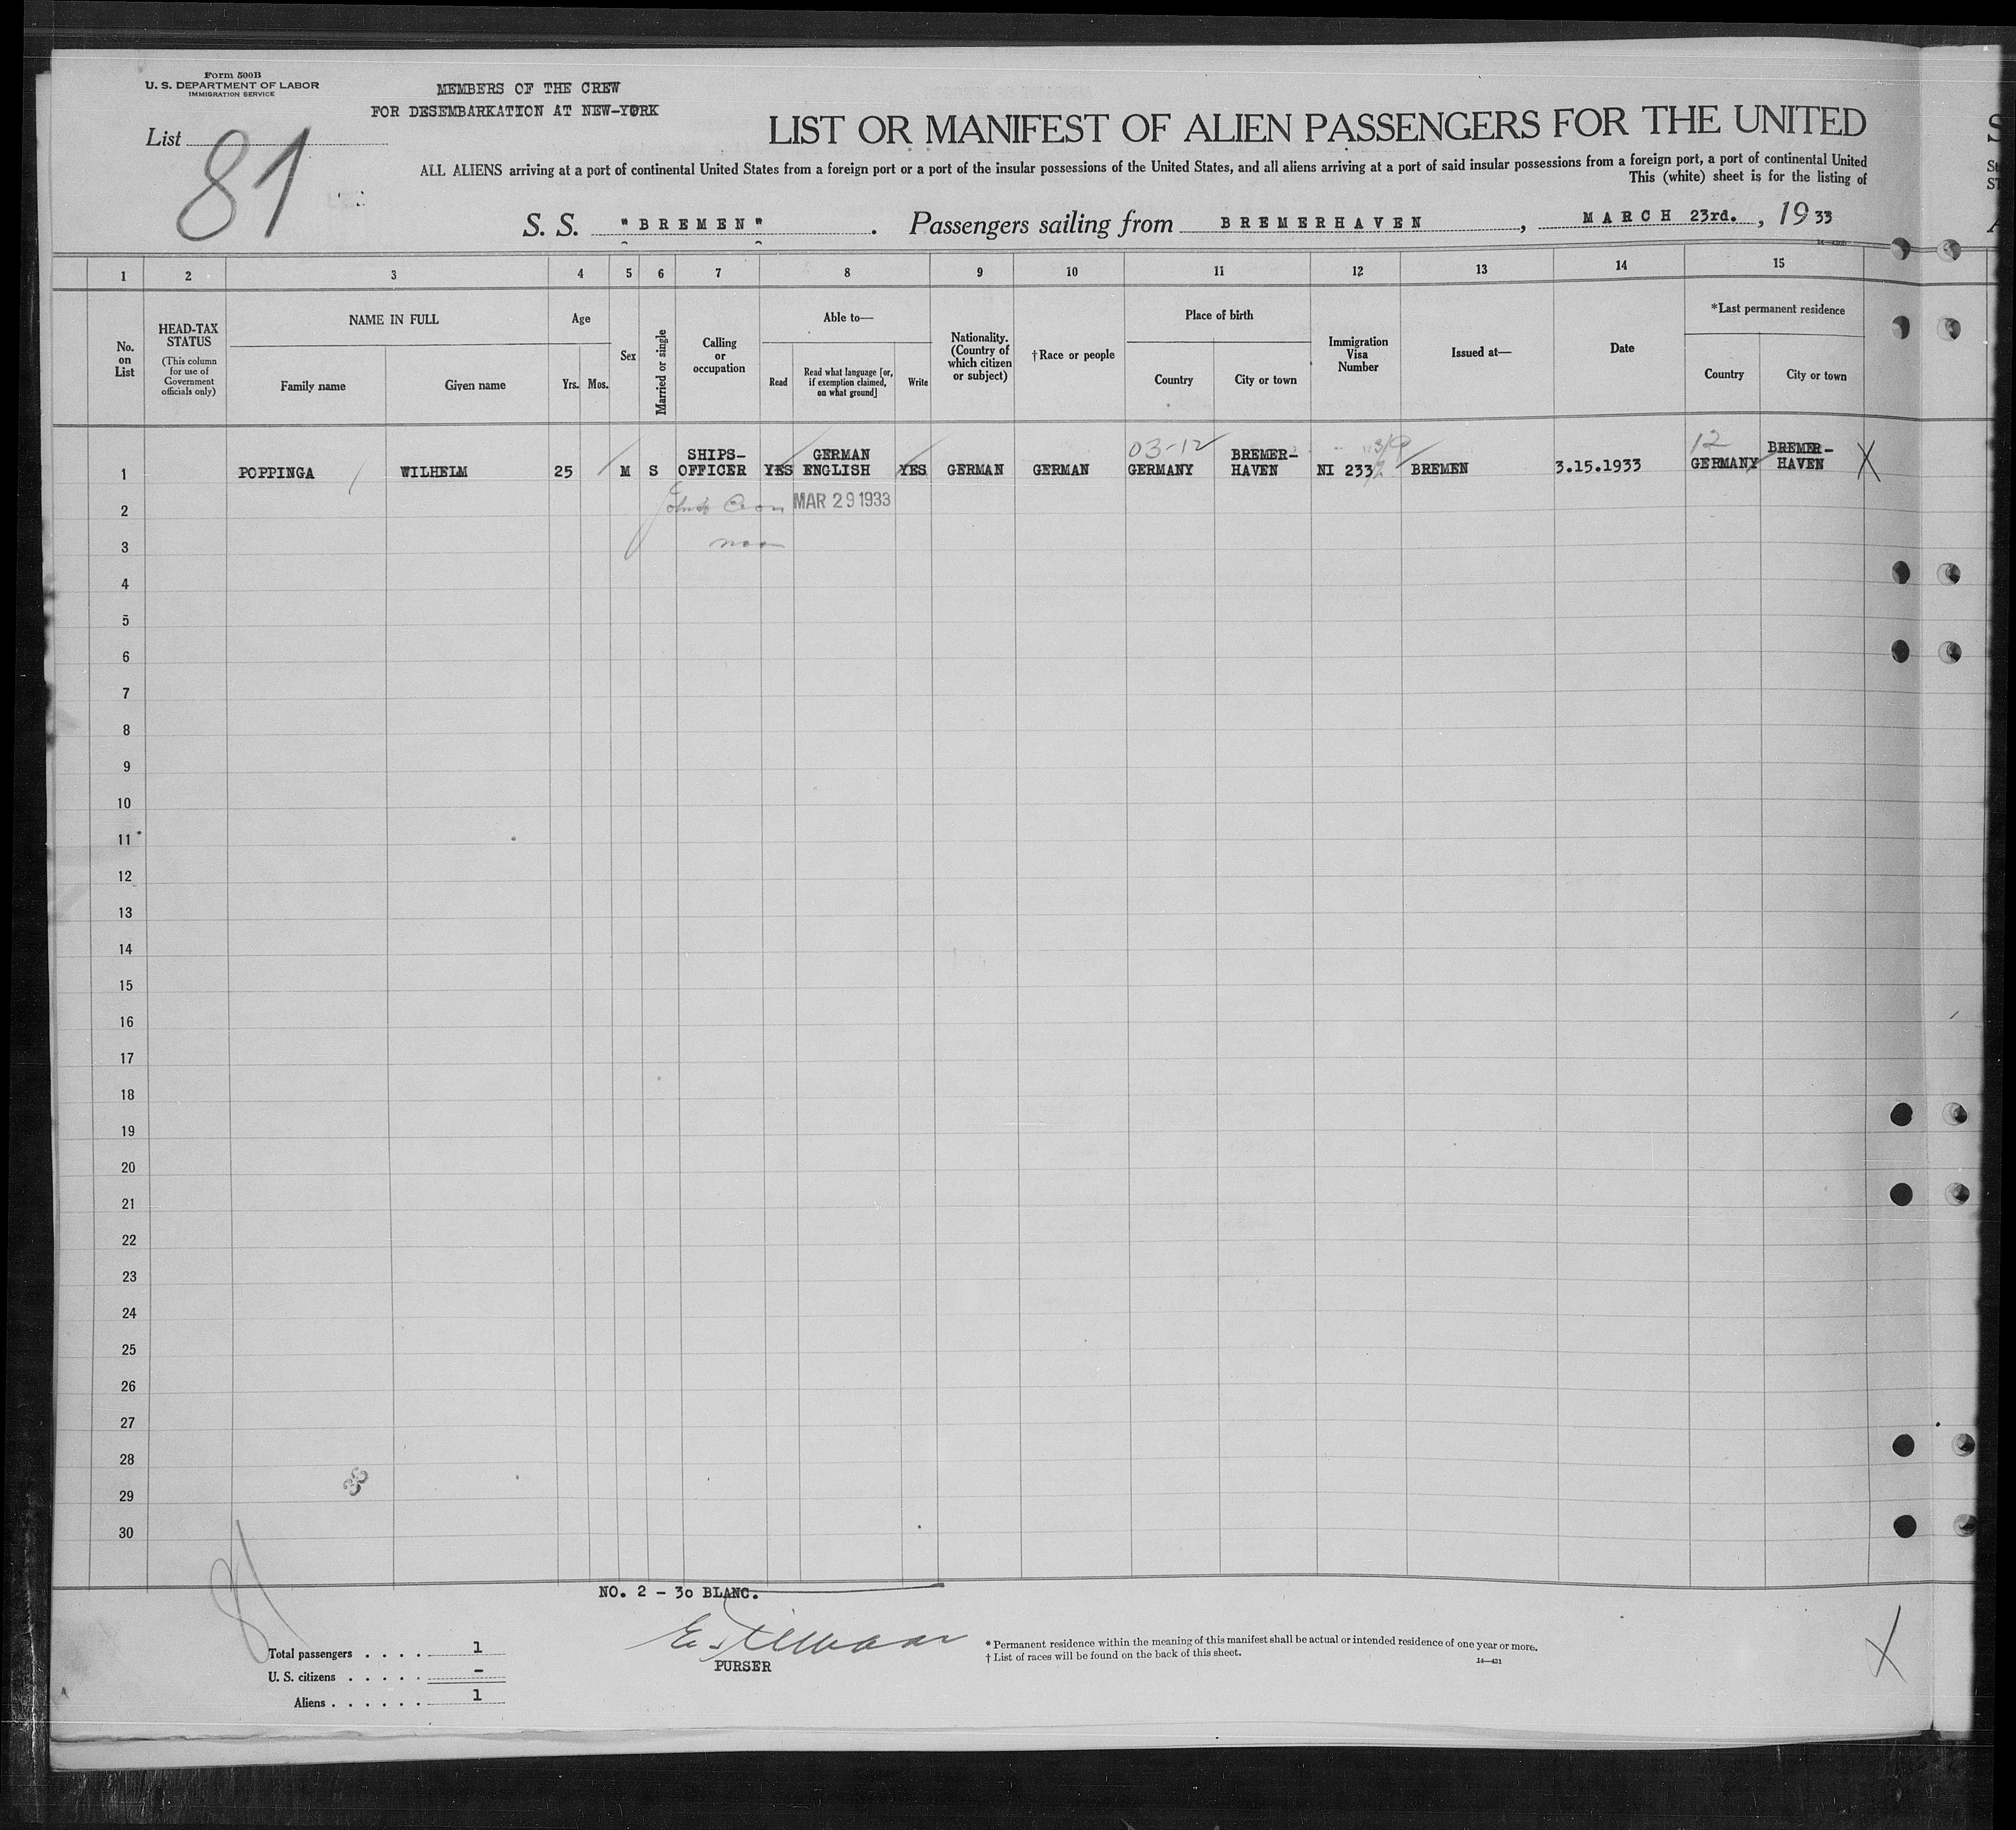 Form 500B
U. S. DEPARTMENT OF LABOR
IMMIGRATION SERVICE
MEMBERS OF THE CREW
FOR DESEMBARKATION AT NEW-YORK
List 81
LIST OR MANIFEST OF ALIEN PASSENGERS FOR THE UNITED
ALL ALIENS arriving at a port of continental United States from a foreign port or a port of the insular possessions of the United States, and all aliens arriving at a port of said insular possessions from a foreign port, a port of continental United
This (white) sheet is for the listing of
S. S. "BREMEN". Passengers sailing from BREMERHAVEN, MARCH 23rd., 1933
1 2 3 4 5 6 7 8 9 10 11 12 13 14 15
No. on List
HEAD-TAX STATUS
(This column for use of Government officials only)
NAME IN FULL
Family name Given name
Age
Yrs. Mos.
Sex
Married or single
Calling or occupation
Able to—
Read
Read what language [or, if exemption claimed, on what ground]
Write
Nationality. (Country of which citizen or subject)
†Race or people
Place of birth
Country City or town
Immigration Visa Number
Issued at—
Date
*Last permanent residence
Country City or town
03-12 12
1 POPPINGA WILHELM 25 M S SHIPS-OFFICER YES GERMAN ENGLISH YES GERMAN GERMAN GERMANY BREMER-HAVEN NI 233 BREMEN 3.15.1933 GERMANY BREMER-HAVEN X
2 MAR 29 1933
3
4
5
6
7
8
9
10
11
12
13
14
15
16
17
18
19
20
21
22
23
24
25
26
27
28
29
30
81
NO. 2 - 30 BLANC.
PURSER
Total passengers . . . . 1
U. S. citizens . . . . . -
Aliens . . . . . . 1
* Permanent residence within the meaning of this manifest shall be actual or intended residence of one year or more.
† List of races will be found on the back of this sheet.
14—431
X